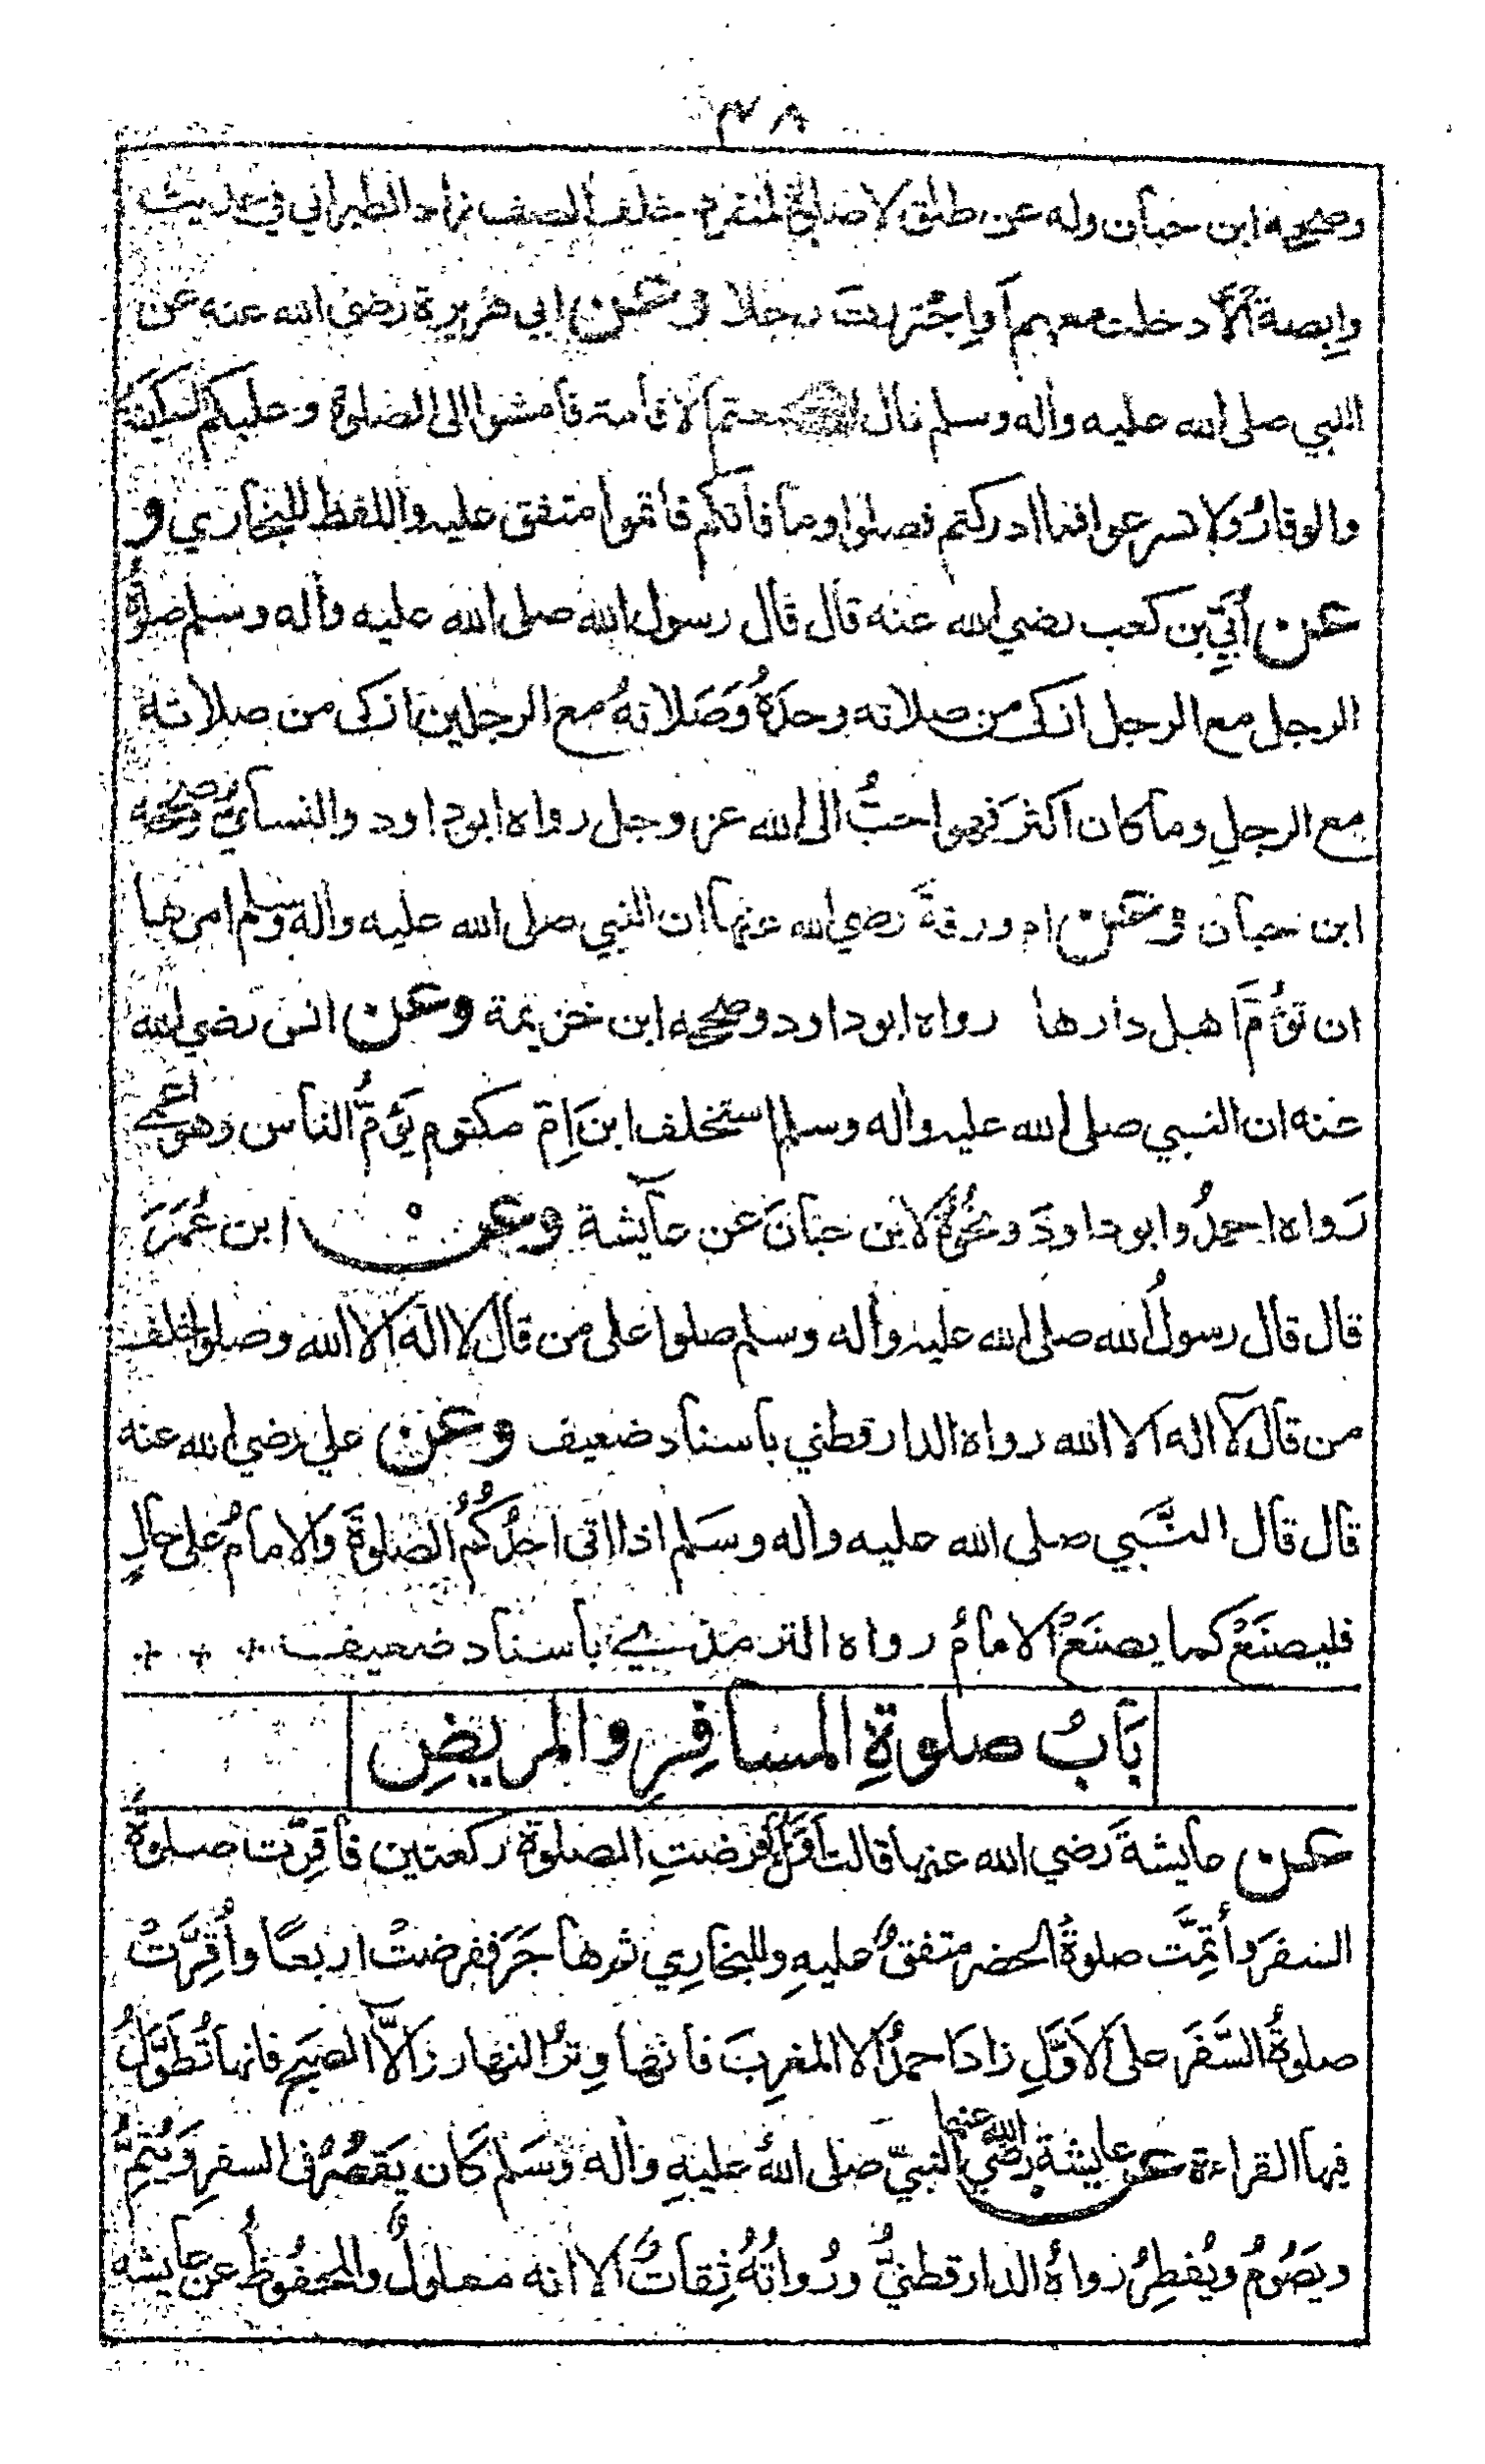 ٣٨
وصححه ابن حبان وله عن طلق لا صلوة لمنفرد خلف الصف زاد الطبراني في حديث
وابصة ألا دخلت معهم أو اجتررت رجلا وعن ابي هريرة رضي الله عنه عن
النبي صلى الله عليه وأله وسلم قال الاقامة فامشوا الى الصلوة وعليكم السكينة
والوقار ولا تسرعوا فما ادركتم فصلوا وما فاتكم فاتموا متفق عليه واللفظ للبخاري و
عن أبي بن كعب رضي الله عنه قال قال رسول الله صلى الله عليه وأله وسلم صلوة
الرجل مع الرجل ازكى من صلاته وحدهُ وَصَلاتهُ مع الرجلين ازكى من صلاته
مع الرجلِ وما كان اكثر فهو احبُّ الى الله عز وجل رواه ابو داود والنسائي وصححه
ابن حبان وعن ام ورقة رضي الله عنها ان النبي صلى الله عليه وأله وسلم امرها
ان تؤمَّ اهل دارها رواه ابو داود وصححه ابن خزيمة وعن انس رضي الله
عنه ان النبي صلى الله عليه وأله وسلم استخلف ابن امّ مكتوم يؤمُّ الناس وهو اعمى
رَواه احمدُ وابو داودَ ونحوُهُ لابن حبانَ عن عايشة وعن ابن عُمَرَ
قال قال رسولُ الله صلى الله عليه وأله وسلم صلوا على من قال لا اله الا الله وصلوا خلف
من قال لا اله الا الله رواه الدارقطني باسناد ضعيف وعن علي رضي الله عنه
قال قال النَّبي صلى الله عليه وأله وسَلم اذا اتى احدُكُمُ الصلوةَ والامامُ على حالٍ
فليصنَعْ كما يصنَعُ الامامُ رواه الترمذي باسناد ضعيف
بَابُ صلوةِ المسافِرِ والمريضِ
عن عايشةَ رضي الله عنها قالت أوّلُ ما فرضتِ الصلوةُ ركعتين فأقِرّت صلوةُ
السفر وأتمَّت صلوةُ الحضر متفقٌ عليهِ وللبخارِي ثم هاجَرَ ففرضتْ اربعًا وأُقِرَّتْ
صلوةُ السَّفَر على الاَوَّلِ زادَ احمدُ الا المغرِبَ فانها وِترُ النهار وَالاَّ الصبحَ فانها تُطَوَّلُ
فيها القراءة عن عايشةَ رضي الله عنها النبيّ صَلى اللهُ عليهِ وأله وَسَلم كَان يَقصُرُ فى السفرِ وَيُتمُّ
ويَصُومُ ويُفطِرُ رواهُ الدارقطنيُّ ورُواتُهُ ثِقاتٌ الا انه معلولٌ والمحفُوظُ عن عايشة